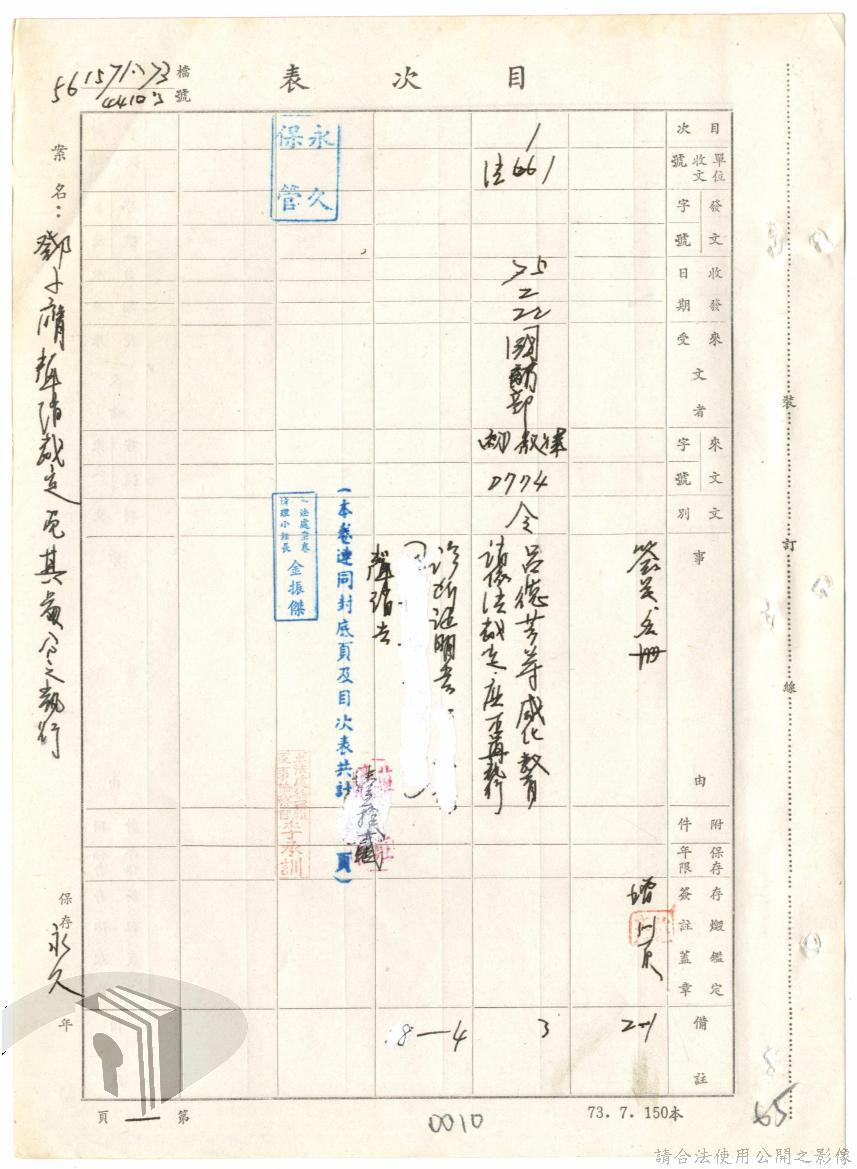 目次表
檔號
目次
單位收文號
發文字號
收發日期
來文受者
來文字號
文別
事由
附件
保存年限
存燬鑑定簽註蓋章
備註
簽呈名冊
增川頁
2-1
1
法661
75
2
22
國防部
0774
令
呂德芳等感化教育
請依法裁定应否再執行
3
診斷證明書
聲請書
8—4
(本卷連同封底頁及目次表共計
頁)
永久保管
清理小組長
金振傑
李承訓
案名：
聲請裁定免其處分之執行
保存永久年
第一頁
0010
73. 7. 150本
裝訂線
65
請合法使用公開之影像